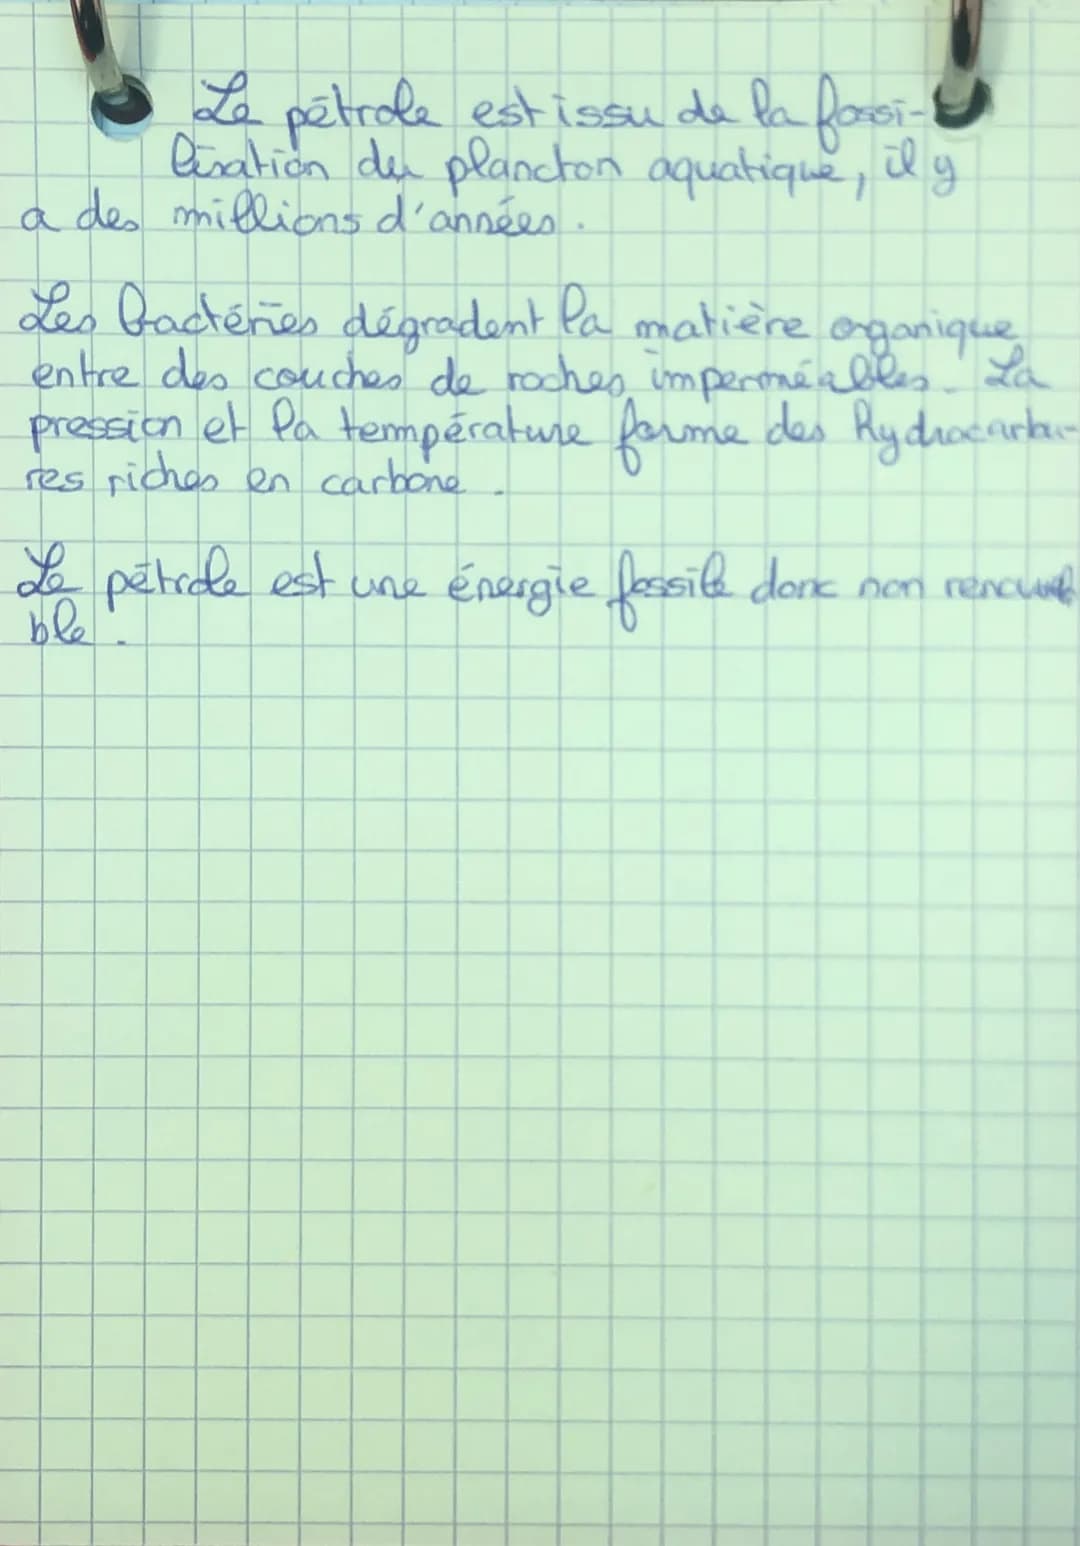 Le pétrole est issu de la fossi-
lisation du plancton aquatique, il y
a des millions d'années.
Les bactéries dégradent la matière organique
entre des couches de roches imperméables. La
pression et la température forme des hydrocarbu-
res riches en carbone.
Le pétrole est une énergie fossile donc non renouvela
ble.